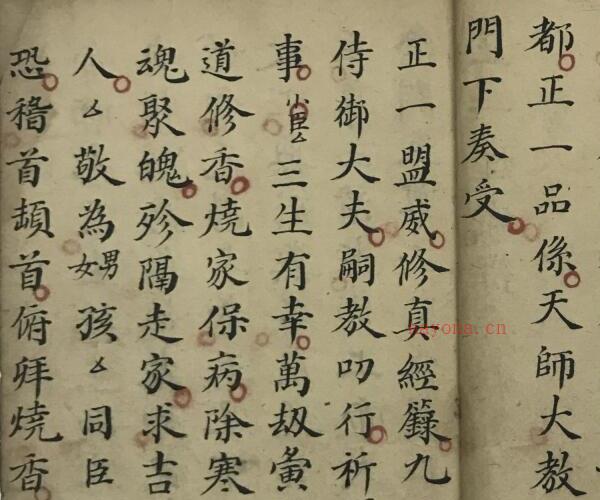 都正一品係天師大教
門下奏受
正一盟威修真經籙九
侍御大夫嗣教叨行祈
事小臣厶三生有幸萬劫
道修香燒家保病除寒
魂聚魄殄隔走家求吉
人厶敬為男女孩厶同臣
恐稽首頓首俯拜燒香
nayona.cn